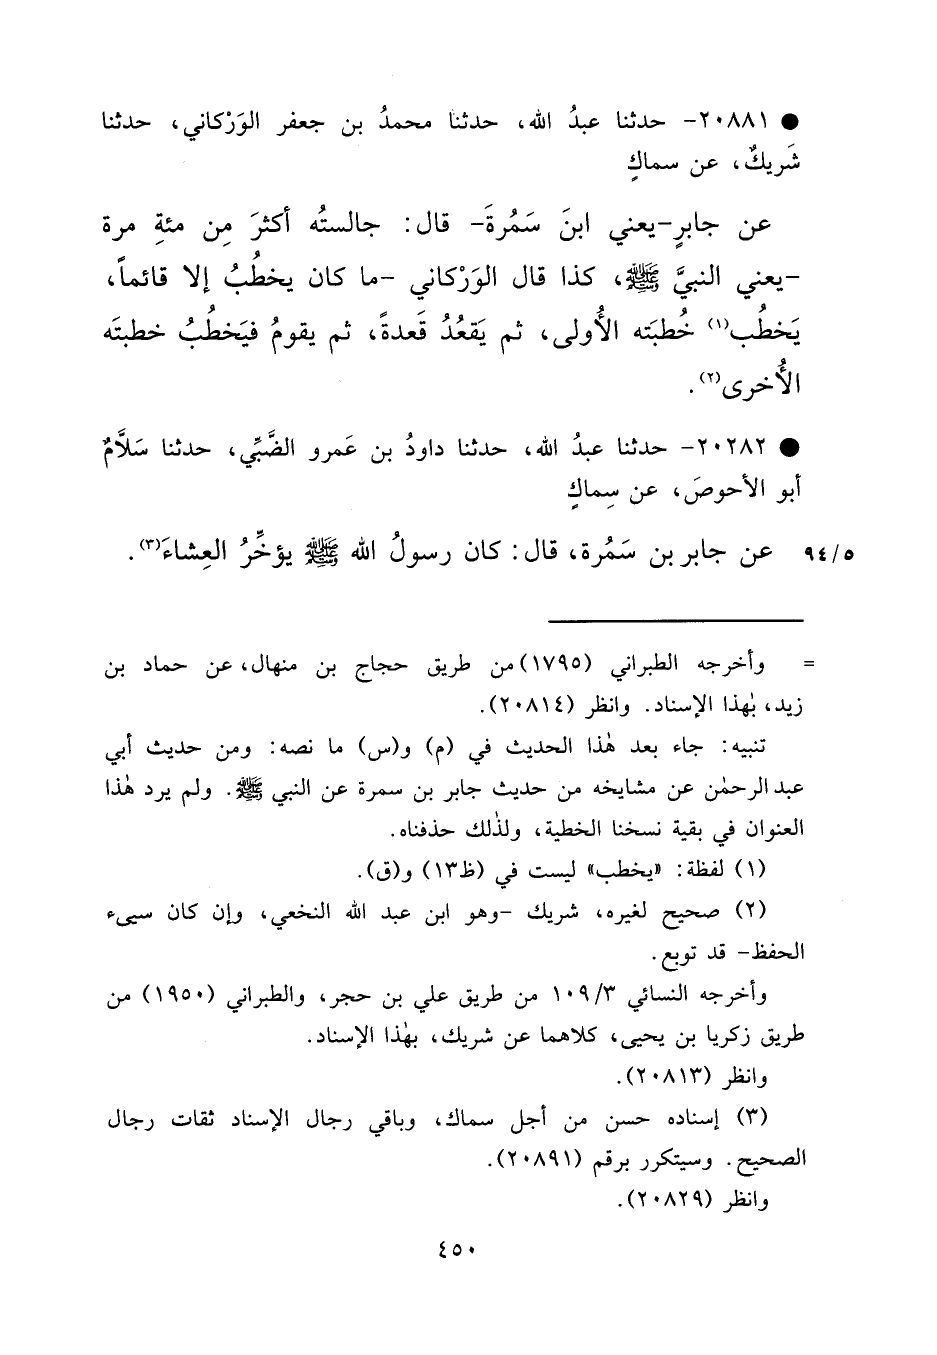 ● ٢٠٨٨١- حدثنا عبدُ الله، حدثنا محمدُ بن جعفر الوَرْكاني، حدثنا
شَريكٌ، عن سماكٍ
عن جابرٍ-يعني ابنَ سَمُرةَ- قال: جالستُه أكثرَ مِن مئةِ مرة
-يعني النبيَّ ﷺ، كذا قال الوَرْكاني -ما كان يخطُبُ إلا قائماً،
يَخطُب(١) خُطبَته الأُولى، ثم يَقعُدُ قَعدةً، ثم يقومُ فيَخطُبُ خطبتَه
الأُخرى(٢).
● ٢٠٢٨٢- حدثنا عبدُ الله، حدثنا داودُ بن عَمرو الضَّبِّي، حدثنا سَلَّامٌ
أبو الأحوصَ، عن سِماكٍ
٩٤/٥ عن جابر بن سَمُرة، قال: كان رسولُ الله ﷺ يؤخِّرُ العِشاءَ(٣).
= وأخرجه الطبراني (١٧٩٥) من طريق حجاج بن منهال، عن حماد بن
زيد، بهٰذا الإسناد. وانظر (٢٠٨١٤).
تنبيه: جاء بعد هٰذا الحديث في (م) و(س) ما نصه: ومن حديث أبي
عبد الرحمٰن عن مشايخه من حديث جابر بن سمرة عن النبي ﷺ. ولم يرد هٰذا
العنوان في بقية نسخنا الخطية، ولذٰلك حذفناه.
(١) لفظة: «يخطب» ليست في (ظ١٣) و(ق).
(٢) صحيح لغيره، شريك -وهو ابن عبد الله النخعي، وإن كان سيىء
الحفظ- قد توبع.
وأخرجه النسائي ١٠٩/٣ من طريق علي بن حجر، والطبراني (١٩٥٠) من
طريق زكريا بن يحيى، كلاهما عن شريك، بهٰذا الإسناد.
وانظر (٢٠٨١٣).
(٣) إسناده حسن من أجل سماك، وباقي رجال الإسناد ثقات رجال
الصحيح. وسيتكرر برقم (٢٠٨٩١).
وانظر (٢٠٨٢٩).
٤٥٠